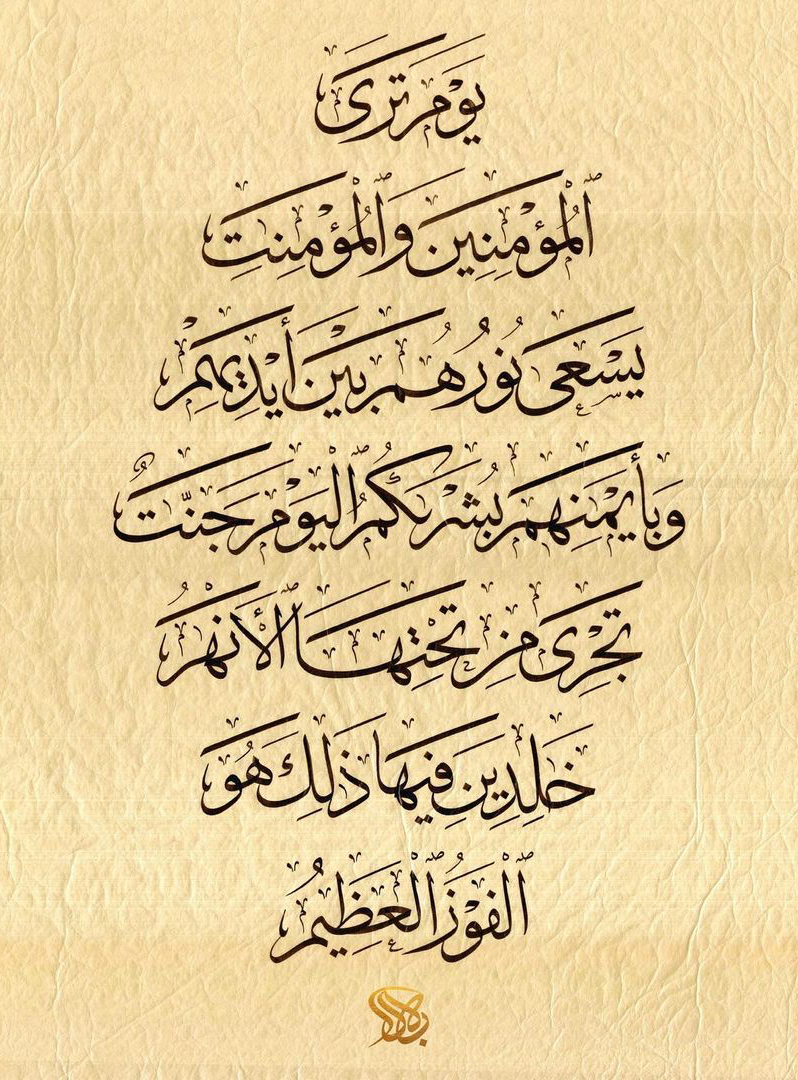 يَوْمَ تَرَى
ٱلْمُؤْمِنِينَ وَٱلْمُؤْمِنَٰتِ
يَسْعَىٰ نُورُهُم بَيْنَ أَيْدِيهِمْ
وَبِأَيْمَٰنِهِم بُشْرَىٰكُمُ ٱلْيَوْمَ جَنَّٰتٌ
تَجْرِى مِن تَحْتِهَا ٱلْأَنْهَٰرُ
خَٰلِدِينَ فِيهَا ذَٰلِكَ هُوَ
ٱلْفَوْزُ ٱلْعَظِيمُ